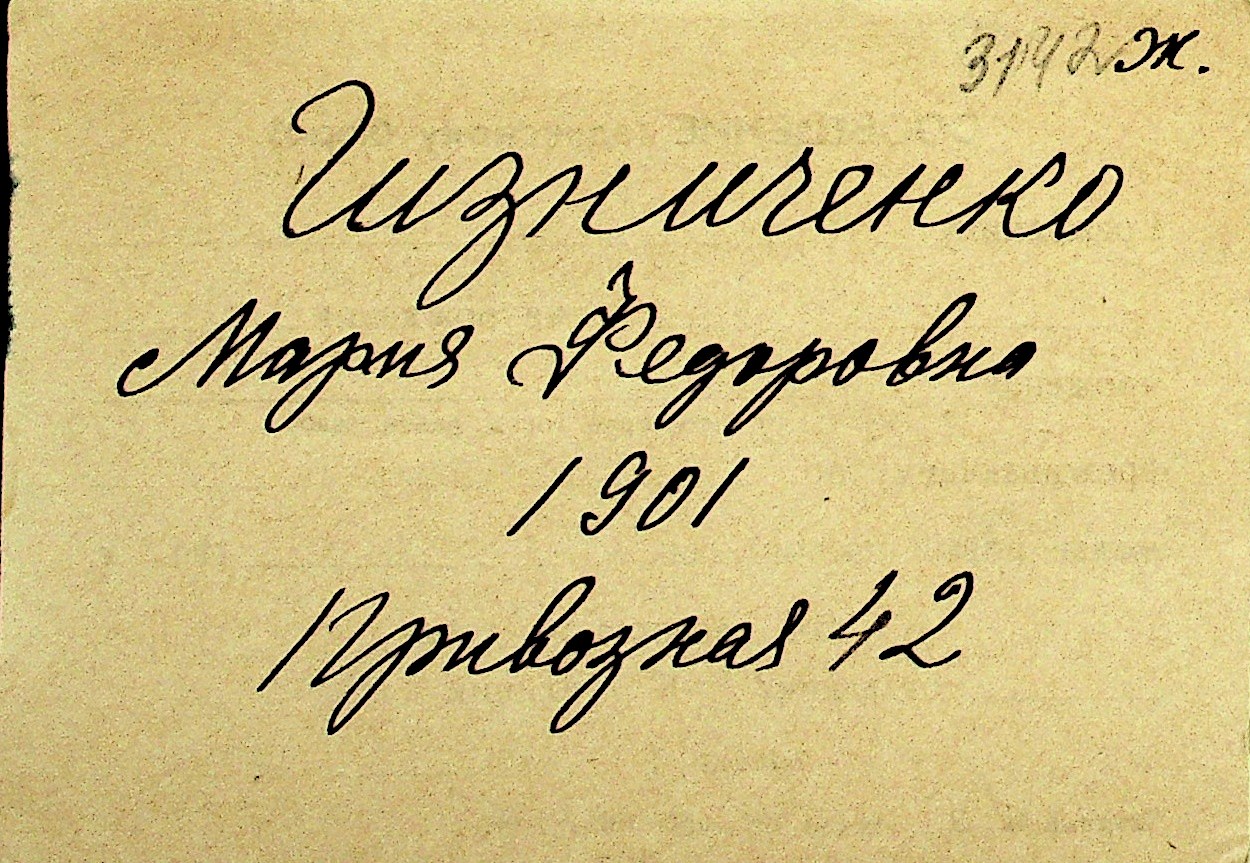 3142 ж.
Гизниченко
Мария Федоровна
1901
Привозная 42